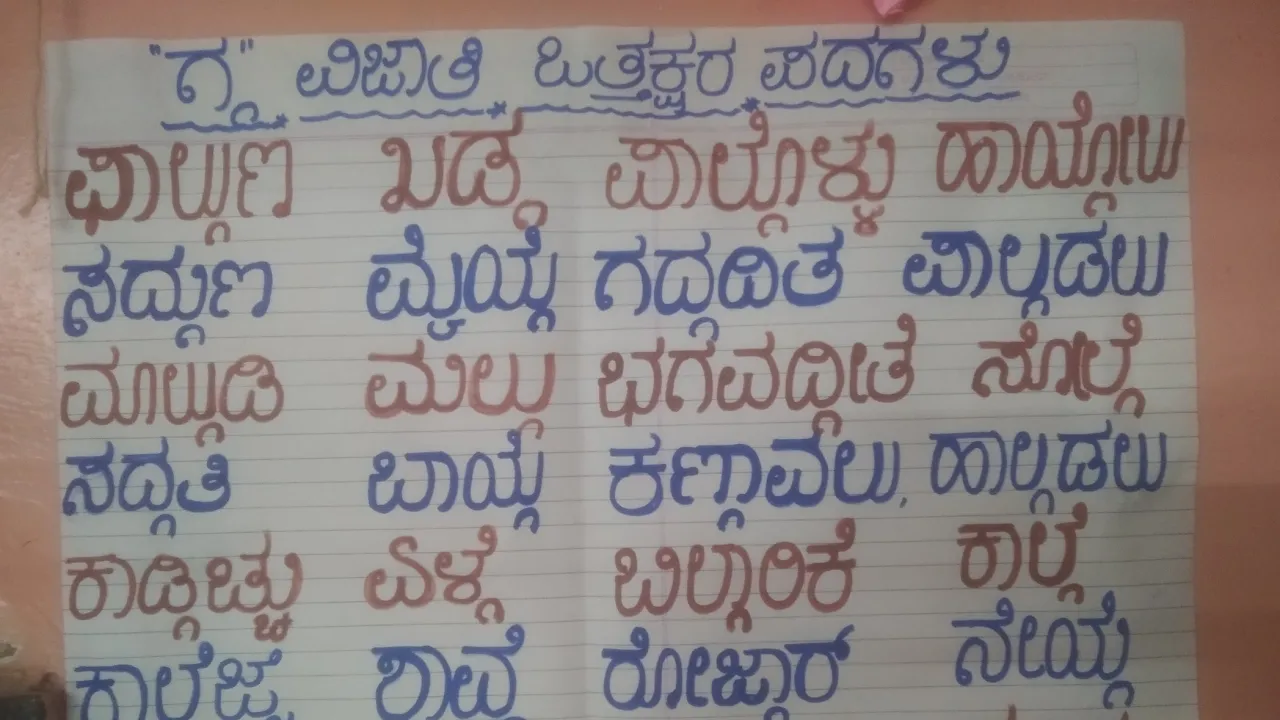 "ಗ್ಗ" ವಿಜಾತಿ ಒತ್ತಕ್ಷರ ಪದಗಳು
ಫಾಲ್ಗುಣ ಖಡ್ಗ ಪಾಲ್ಗೊಳ್ಳು ಹಾಯ್ಗೋಲು
ಸದ್ಗುಣ ಮೈಯ್ಗೆ ಗದ್ಗದಿತ ಪಾಲ್ಗಡಲು
ಮಾಲ್ಗುಡಿ ಮಲ್ಗು ಭಗವದ್ಗೀತೆ ಸೋಲ್ಗೆ
ಸದ್ಗತಿ ಬಾಯ್ಗೆ ಕಣ್ಗಾವಲು, ಹಾಲ್ಗಡಲು
ಕಾಡ್ಗಿಚ್ಚು ಏಳ್ಗೆ ಬಿಲ್ಗಾರಿಕೆ ಕಾಲ್ಗೆ
ಕಾಲೆಜ್ಗೆ ಶಾವ್ಗೆ ರೋಜ್ಗಾರ್ ನೇಯ್ಗೆ